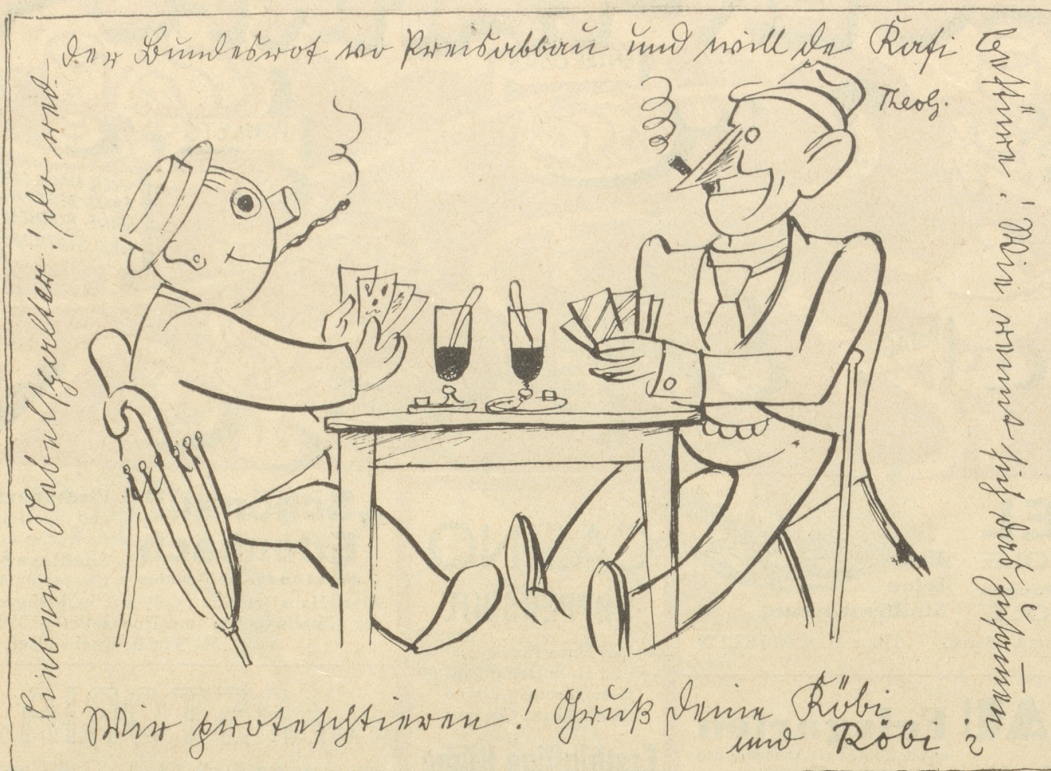 Lieber Nebelspalter! Do red
der Bundesrot vo Preisabbau und will de Kafi
bestüüre! Wie reimt sich das zusammen?
Wir proteschtieren! Gruß deine Köbi
und Röbi
Theoh.